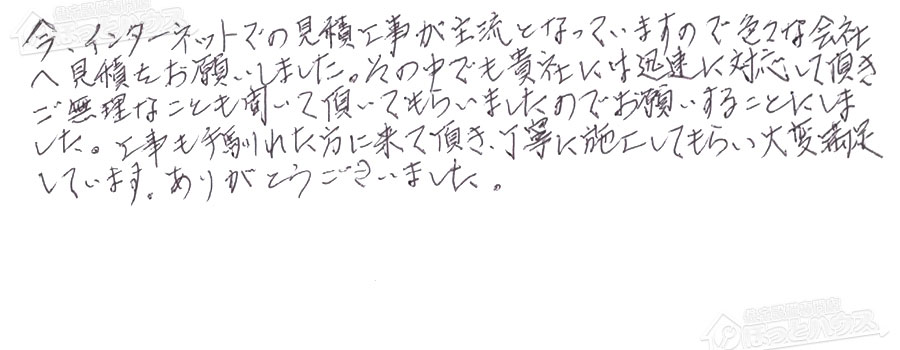 今、インターネットでの見積工事が主流となっていますので色々な会社
へ見積をお願いしました。その中でも貴社には迅速に対応して頂き
ご無理なことも聞いて頂いてもらいましたのでお願いすることにしま
した。工事も手馴れた方に来て頂き、丁寧に施工してもらい大変満足
しています。ありがとうございました。
住宅設備専門店
ほっとハウス